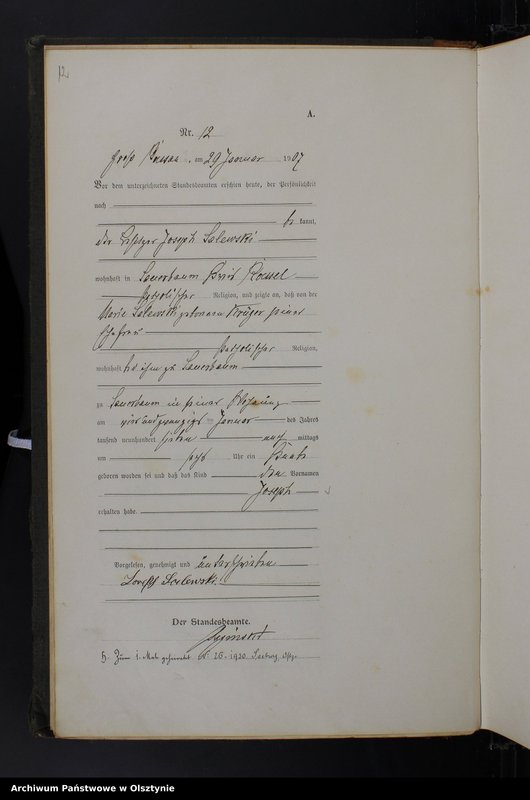 12
A.
Nr. 12
am 29 Januar 1907
Vor dem unterzeichneten Standesbeamten erschien heute, der Persönlichkeit
nach
be kannt,
der Besitzer Joseph Salewski
wohnhaft in Sauerbaum Kreis Roessel
katholischer Religion, und zeigte an, daß von der
Marie Salewski geborenen Krüger seiner
Ehefrau
katholischer Religion,
wohnhaft bei ihm zu Sauerbaum
zu Sauerbaum in seiner Wohnung
am vierundzwanzigsten Januar des Jahres
tausend neunhundert sieben nach mittags
um sechs Uhr ein Knabe
geboren worden sei und daß das Kind den Vornamen
Joseph
erhalten habe.
Vorgelesen, genehmigt und unterschrieben
Joseph Salewski
Der Standesbeamte.
H. Zum 1. Male geheiratet Nr. 26-1930
Archiwum Państwowe w Olsztynie